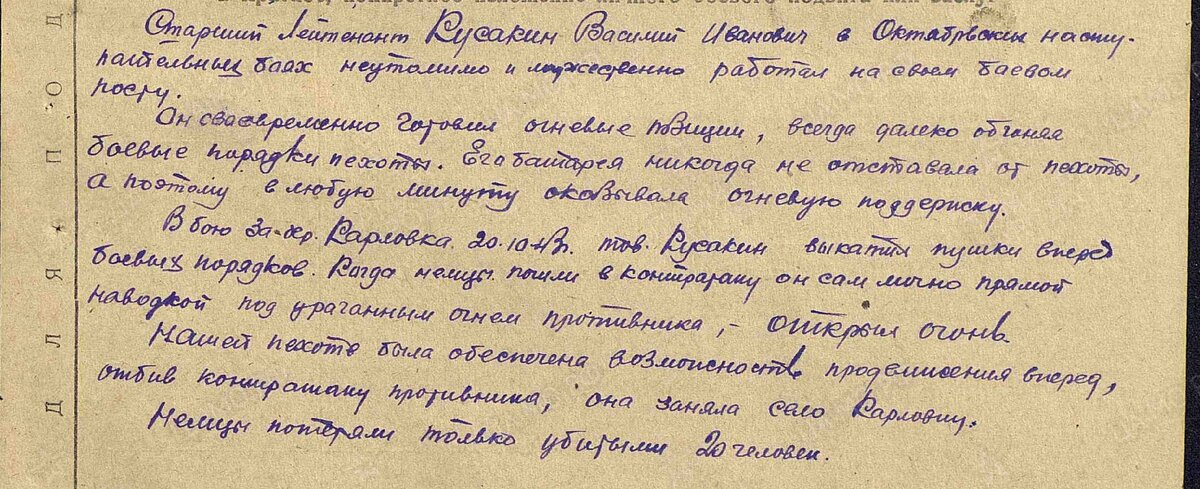 краткое, конкретное изложение личного боевого подвига или заслуг
Старший Лейтенант Кусакин Василий Иванович в Октябрьских насту-
пательных баях неутомимо и мужественно работал на своем баевом
посту.
Он сваевременно готовил огневые позиции, всегда далеко обгоняя
боевые порядки пехоты. Его батарея никогда не отставала от пехоты,
а поэтому в любую минуту оказывала огневую поддержку.
В бою за хр. Карловка 20.10.43г. тов. Кусакин выкатил пушки вперед
боевых порядков. Когда немцы пошли в контратаку он сам лично прямой
наводкой под ураганным огнем противника, - открыл огонь.
Нашей пехоте была обеспечена возможность продвижения вперед,
отбив контратаку противника, она заняла село Карловку.
Немцы потеряли только убитыми 20 человек.
ДЛЯ ПОД